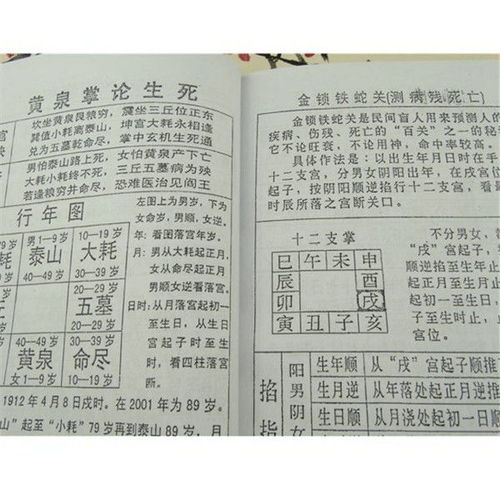 黄泉掌论生死
坎坐黄泉艮粮穷，震坐三丘位正东
巽值小耗离泰山，坤宫大耗永相逢
兑为五墓乾命尽，掌中玄机生死通
男怕泰山路上死，女怕黄泉产下亡
大耗小耗终不死，三丘五墓病为殃
若逢粮穷并命尽，恐难医治见阎王
行年图
男1—9岁 10—19岁
泰山 大耗
40—49岁 30—39岁
20—29岁
五墓
20—29岁
40—49岁 30—39岁
黄泉 命尽
女1—9岁 10—19岁
左图上为男岁，下为
女命岁，男顺，女逆。
年：看图落宫年岁。
月：男从大耗起正月，
女从命尽起正月
男顺女逆看落宫
日时：从月落宫起初一
至生日，从生日
宫起子时至生
时，看四柱落宫
断。
1912年4月8日戌时。在2001年为89岁。
山”起至“小耗”79岁再到泰山89岁，月
金锁铁蛇关(测病残死亡)
金锁铁蛇关是民间盲人用来预测人的
疾病、伤残、死亡的“百关”之一的秘
它不论旺衰，不论用神，命中率较高。
具体作法是：以出生年月日时在手
十二支宫，分男女阴阳出年，在戌宫位
起子，按阴阳顺逆掐行十二支宫，看
时辰所落之宫断关口。
十二支掌
巳 午 未 申
辰 酉
卯 戌
寅 丑 子 亥
不分男女，
“戌”宫起子
顺逆掐至生年止
起正月至生月止
起初一至生日
子至生时止，
宫位。
掐指
阳男阴女
生年顺 从“戌”宫起子顺推
生月逆 从年落处起正月逆推
生日顺 从月浇处起初一日顺